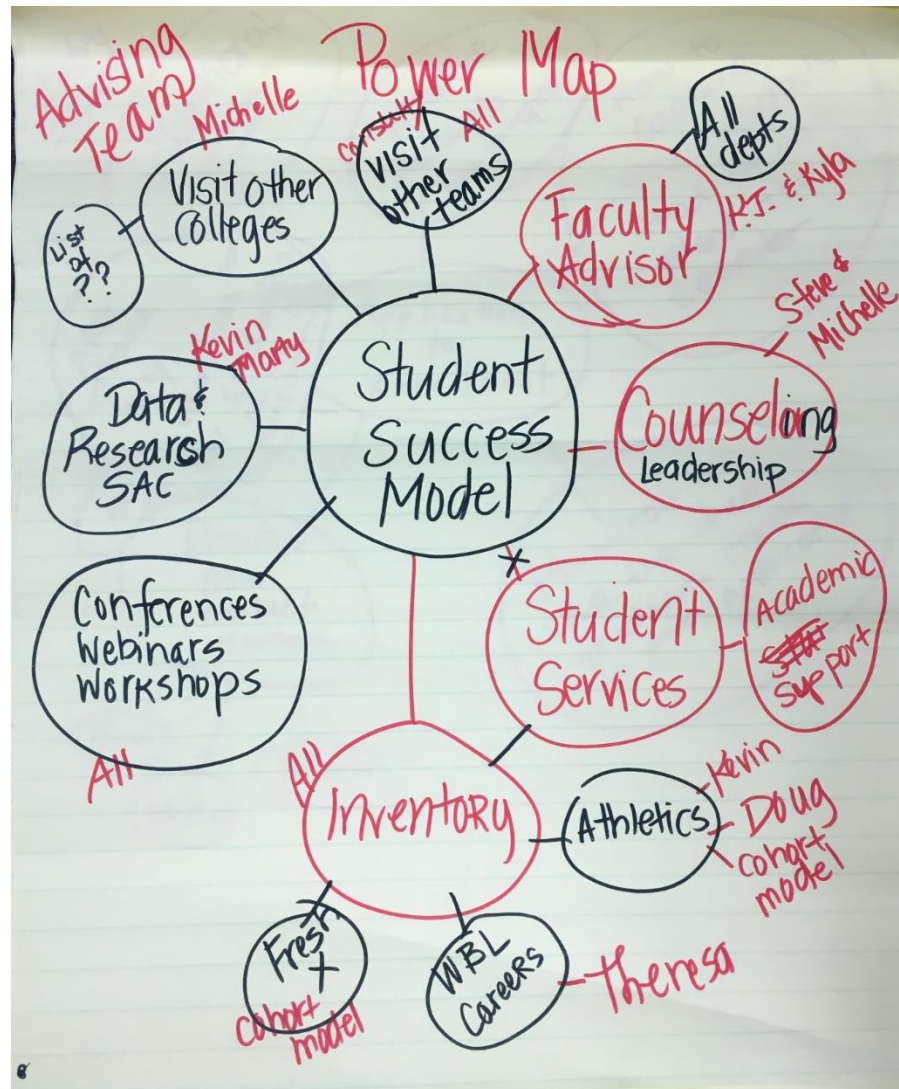 Advising
Team
Power Map
Michelle
All
Visit other
Colleges
List
of
??
visit
other
teams
All
depts
Faculty
Advisor
K.J. & Kyla
Steve &
Michelle
Kevin
Marty
Data &
Research
SAC
Student
Success
Model
Counseling
Leadership
Conferences
Webinars
Workshops
All
Student
Services
Academic
support
All
Inventory
Athletics
Kevin
Doug
cohort
model
Fresh
+
cohort
model
WBL
Careers
Theresa